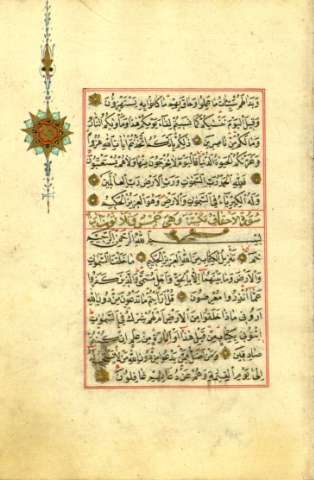 وبدا لهم سيئات ما عملوا وحاق بهم ما كانوا به يستهزؤن
وقيل اليوم ننسيكم كما نسيتم لقاء يومكم هذا ومأويكم النار
وما لكم من ناصرين ذلكم بانكم اتخذتم ايات الله هزوا
وغرتكم الحيوة الدنيا فاليوم لا يخرجون منها ولا هم يستعتبون
فلله الحمد رب السموات ورب الارض رب العالمين
وله الكبرياء في السموات والارض وهو العزيز الحكيم
سورة الاحقاف مكية وهي خمس وثلاثون اية
بسم الله الرحمن الرحيم
حم تنزيل الكتاب من الله العزيز الحكيم ما خلقنا السموات
والارض وما بينهما الا بالحق واجل مسمى والذين كفروا
عما انذروا معرضون قل ارايتم ما تدعون من دون الله
اروني ماذا خلقوا من الارض ام لهم شرك في السموات
ائتوني بكتاب من قبل هذا او اثارة من علم ان كنتم
صادقين ومن اضل ممن يدعوا من دون الله من لا يستجيب له
الى يوم القيمة وهم عن دعائهم غافلون